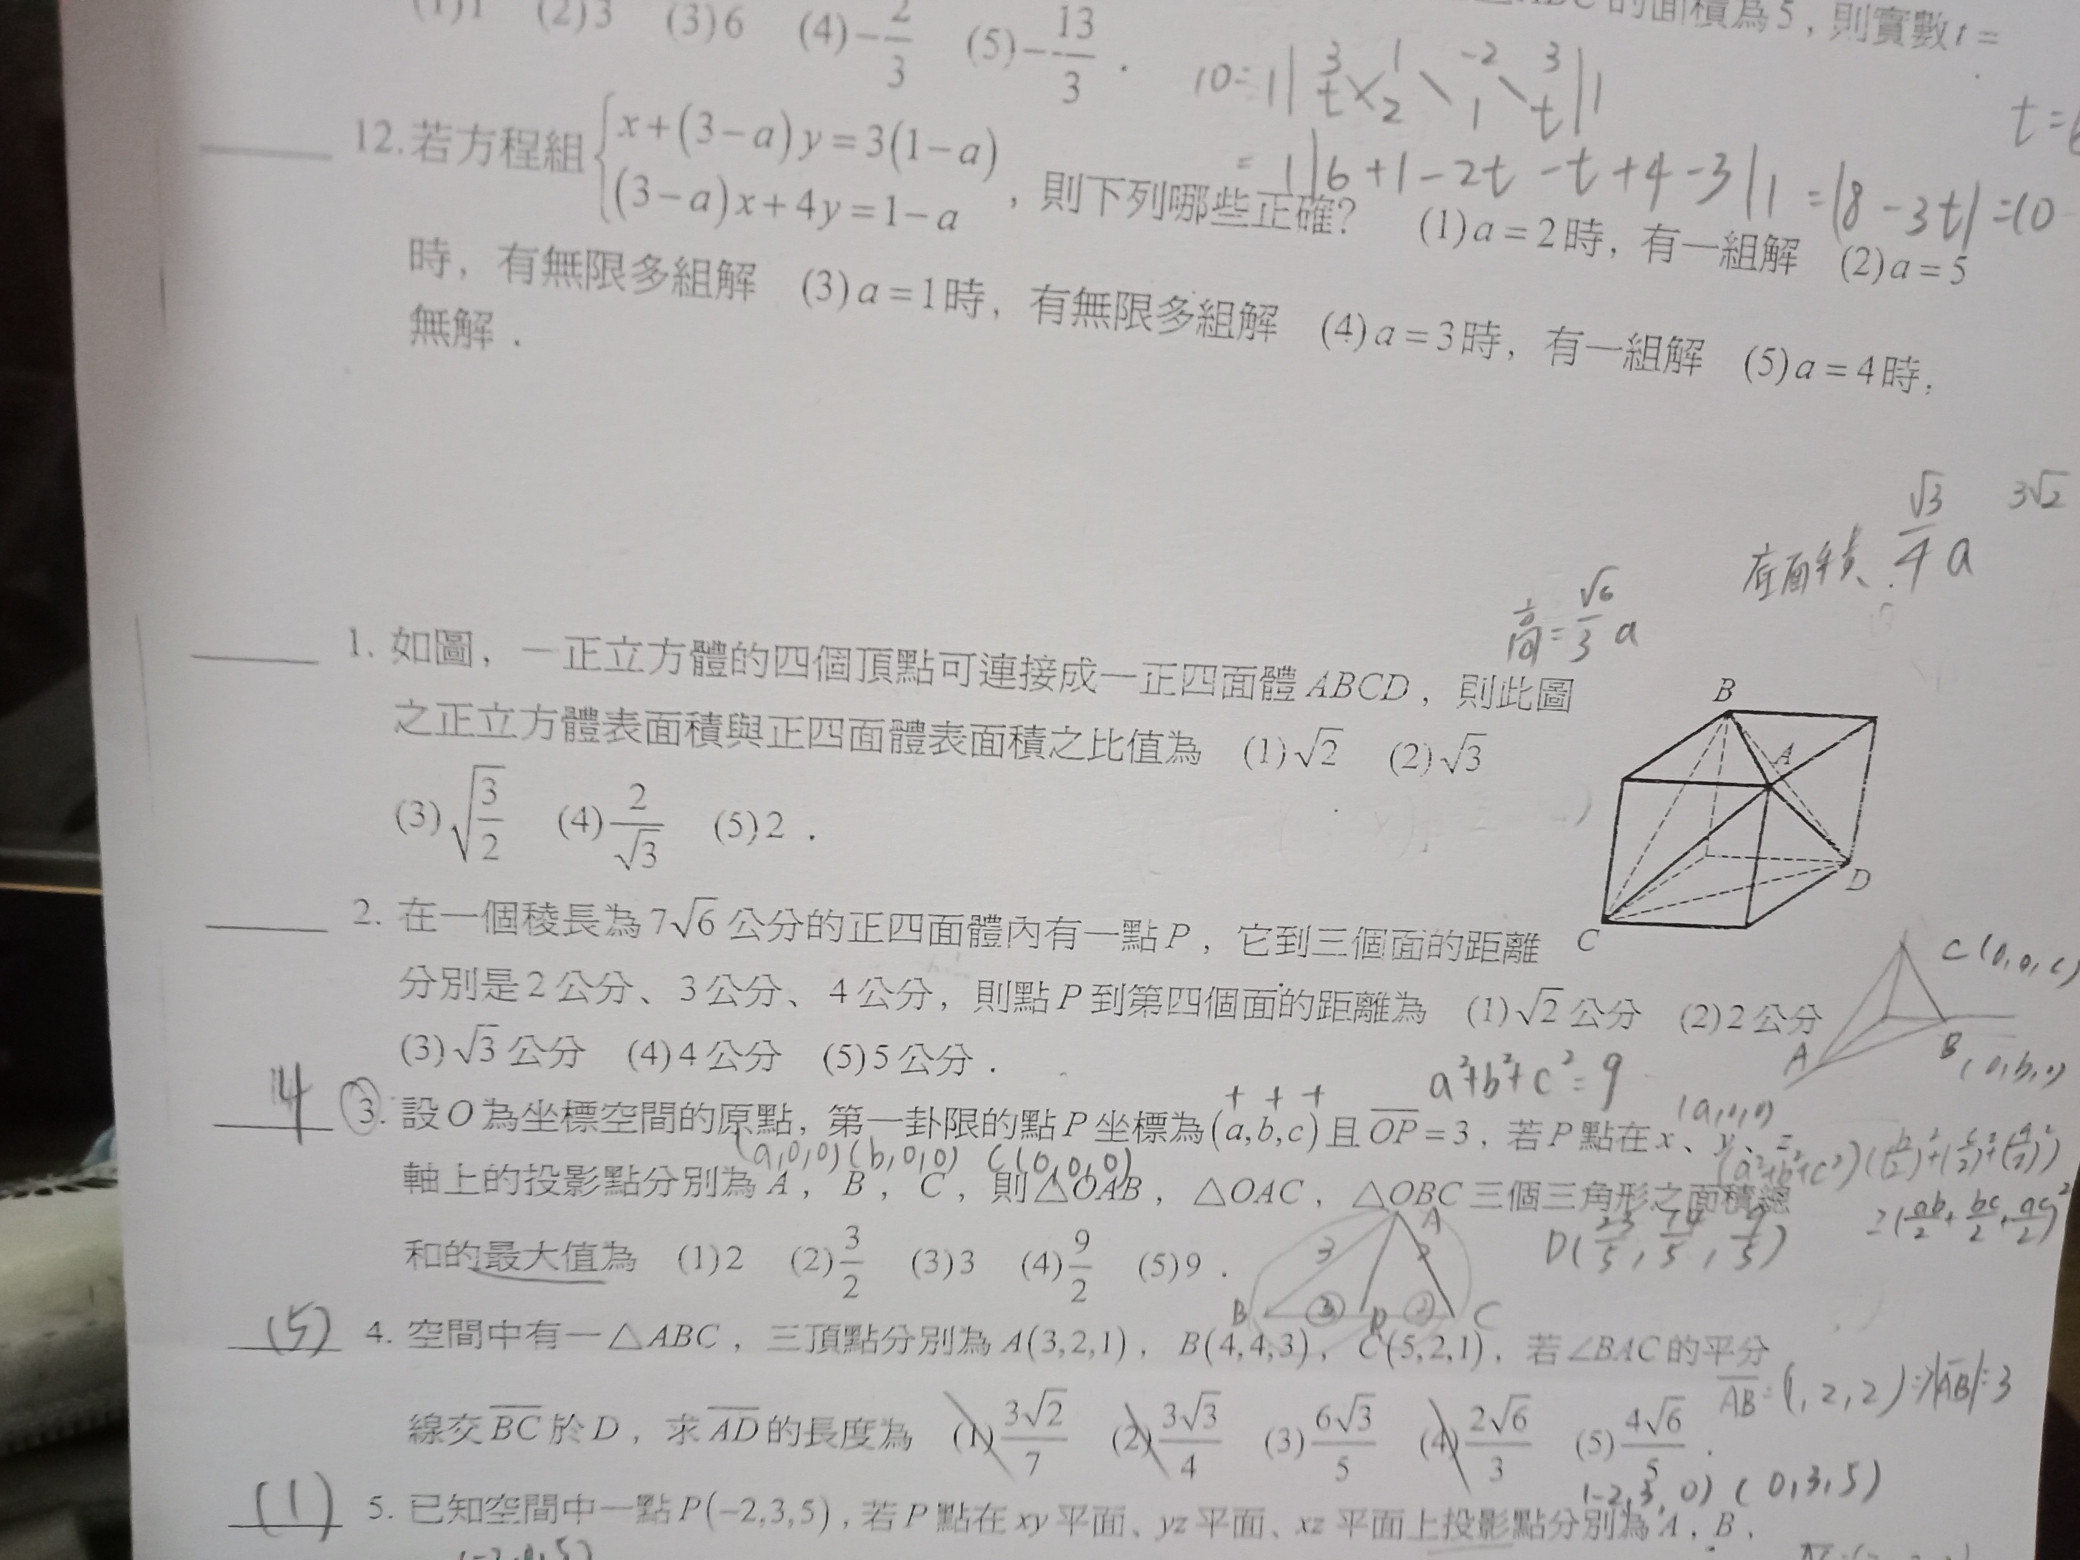 (1)1 (2)3 (3)6 (4)−2/3 (5)−13/3 .
的面積為5，則實數t =
10=1| 3 1 -2 3 |1
t 2 1 t
t=
= 1|6+1-2t-t+4-3|1 =|8-3t|=10
12.若方程組 { x+(3−a)y=3(1−a)
(3−a)x+4y=1−a ，則下列哪些正確? (1)a=2時，有一組解 (2)a=5
時，有無限多組解 (3)a=1時，有無限多組解 (4)a=3時，有一組解 (5)a=4時，
無解．
底面積 √3/4 a 3√2
高=√6/3 a
1. 如圖，一正立方體的四個頂點可連接成一正四面體ABCD，則此圖
之正立方體表面積與正四面體表面積之比值為 (1)√2 (2)√3
(3)√(3/2) (4)2/√3 (5)2．
B
A
D
C
2. 在一個稜長為7√6公分的正四面體內有一點P，它到三個面的距離
分別是2公分、3公分、4公分，則點P到第四個面的距離為 (1)√2公分 (2)2公分
(3)√3公分 (4)4公分 (5)5公分．
C(0,0,c)
A
B(0,b,0)
a²+b²+c²=9
+ + +
(a,0,0)
4 3. 設O為坐標空間的原點，第一卦限的點P坐標為(a,b,c)且OP=3，若P點在x、y、z
(a,0,0)(b,0,0) C(0,0,0)
(a²+b²+c²)
軸上的投影點分別為A，B，C，則△OAB，△OAC，△OBC三個三角形之面積總
≥(ab/2+bc/2+ac/2)²
和的最大值為 (1)2 (2)3/2 (3)3 (4)9/2 (5)9．
A
3
B ③ D ② C
(5) 4. 空間中有一△ABC，三頂點分別為A(3,2,1)，B(4,4,3)，C(5,2,1)，若∠BAC的平分
AB=(1,2,2)⇒|AB|=3
線交BC於D，求AD的長度為 (1)3√2/7 (2)3√3/4 (3)6√3/5 (4)2√6/3 (5)4√6/5．
(-2,3,0) (0,3,5)
(1) 5. 已知空間中一點P(−2,3,5)，若P點在xy平面、yz平面、xz平面上投影點分別為A，B，
(-2,0,5)